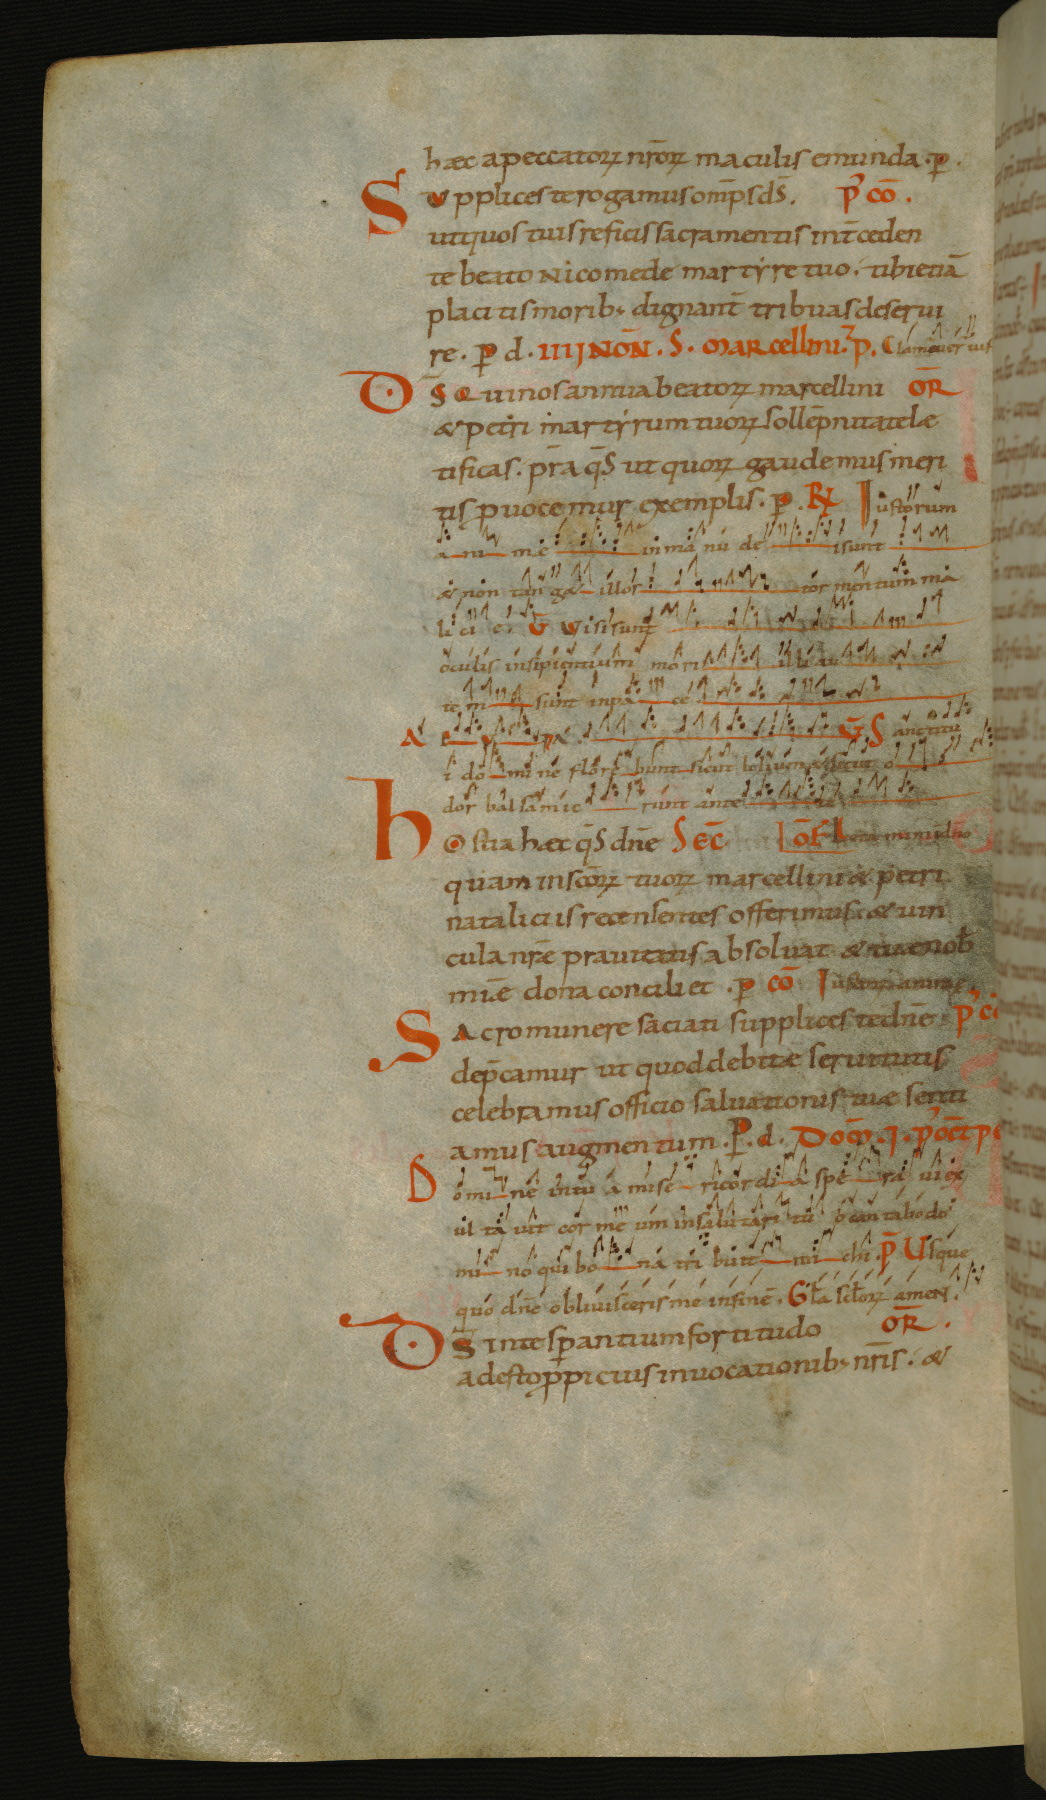 hæc a peccatoꝝ nr̄oꝝ maculis emunda · p̄ .
Supplices te rogamus omp̄s ds̄ . p̄ cō .
ut quos tuis reficis sacramentis int̄ceden
te beato nicomede martyre tuo . tibi etiā
placitis morib; dignant̄ tribuas deserui
re . p̄ d . IIIJ NOÑ . S . MARcellini & p . Clamauer iusti
DS̄ qui nos annua beatoꝝ marcellini OR̄
& petri martyrum tuoꝝ sollēpnitate læ
tificas . p̄ra q̄s ut quoꝝ gaudemus meri
tis p̄uocemur exemplis . p̄ . R̄ Iustorum
animæ in manu dei sunt
& non tanget illos tormentum ma
liciæ . V̄ Visi sunt
oculis insipientium mori illi au
tem sunt in pace
Ae v ia . V̄ S ancti tu
i domine florebunt sicut lilium & sicut o
dor balsami erunt ante te
Hostia hæc q̄s dn̄e SEC̄ OF̄ Letamini in dn̄o
quam in sc̄oꝝ tuoꝝ marcellini & petri
nataliciis recensentes offerimus . & uin
cula nr̄e prauitatis absoluat & tuæ nob̄
mi̅e dona conciliet . p̄ cō Iustoꝝ animæ
Sacro munere saciati supplices te dn̄e p̄ cō
dep̄camur ut quod debitæ seruitutis
celebramus officio saluationis tuæ senti
amus augmentum . P̄ . d . Dom̄ . I . p̄ oct̄ pe
Domine in tua misericordia speraui ex
ultauit cor meum in salutari tuo cantabo do
mino qui bona tribuit michi . P̄ Usque
quo dn̄e obliuisceris me in finem . Gl̄a sc̄loꝝ amen .
DS̄ in te sp̄antium fortitudo OR̄ .
adesto p̄picius inuocationib; nr̄is . &